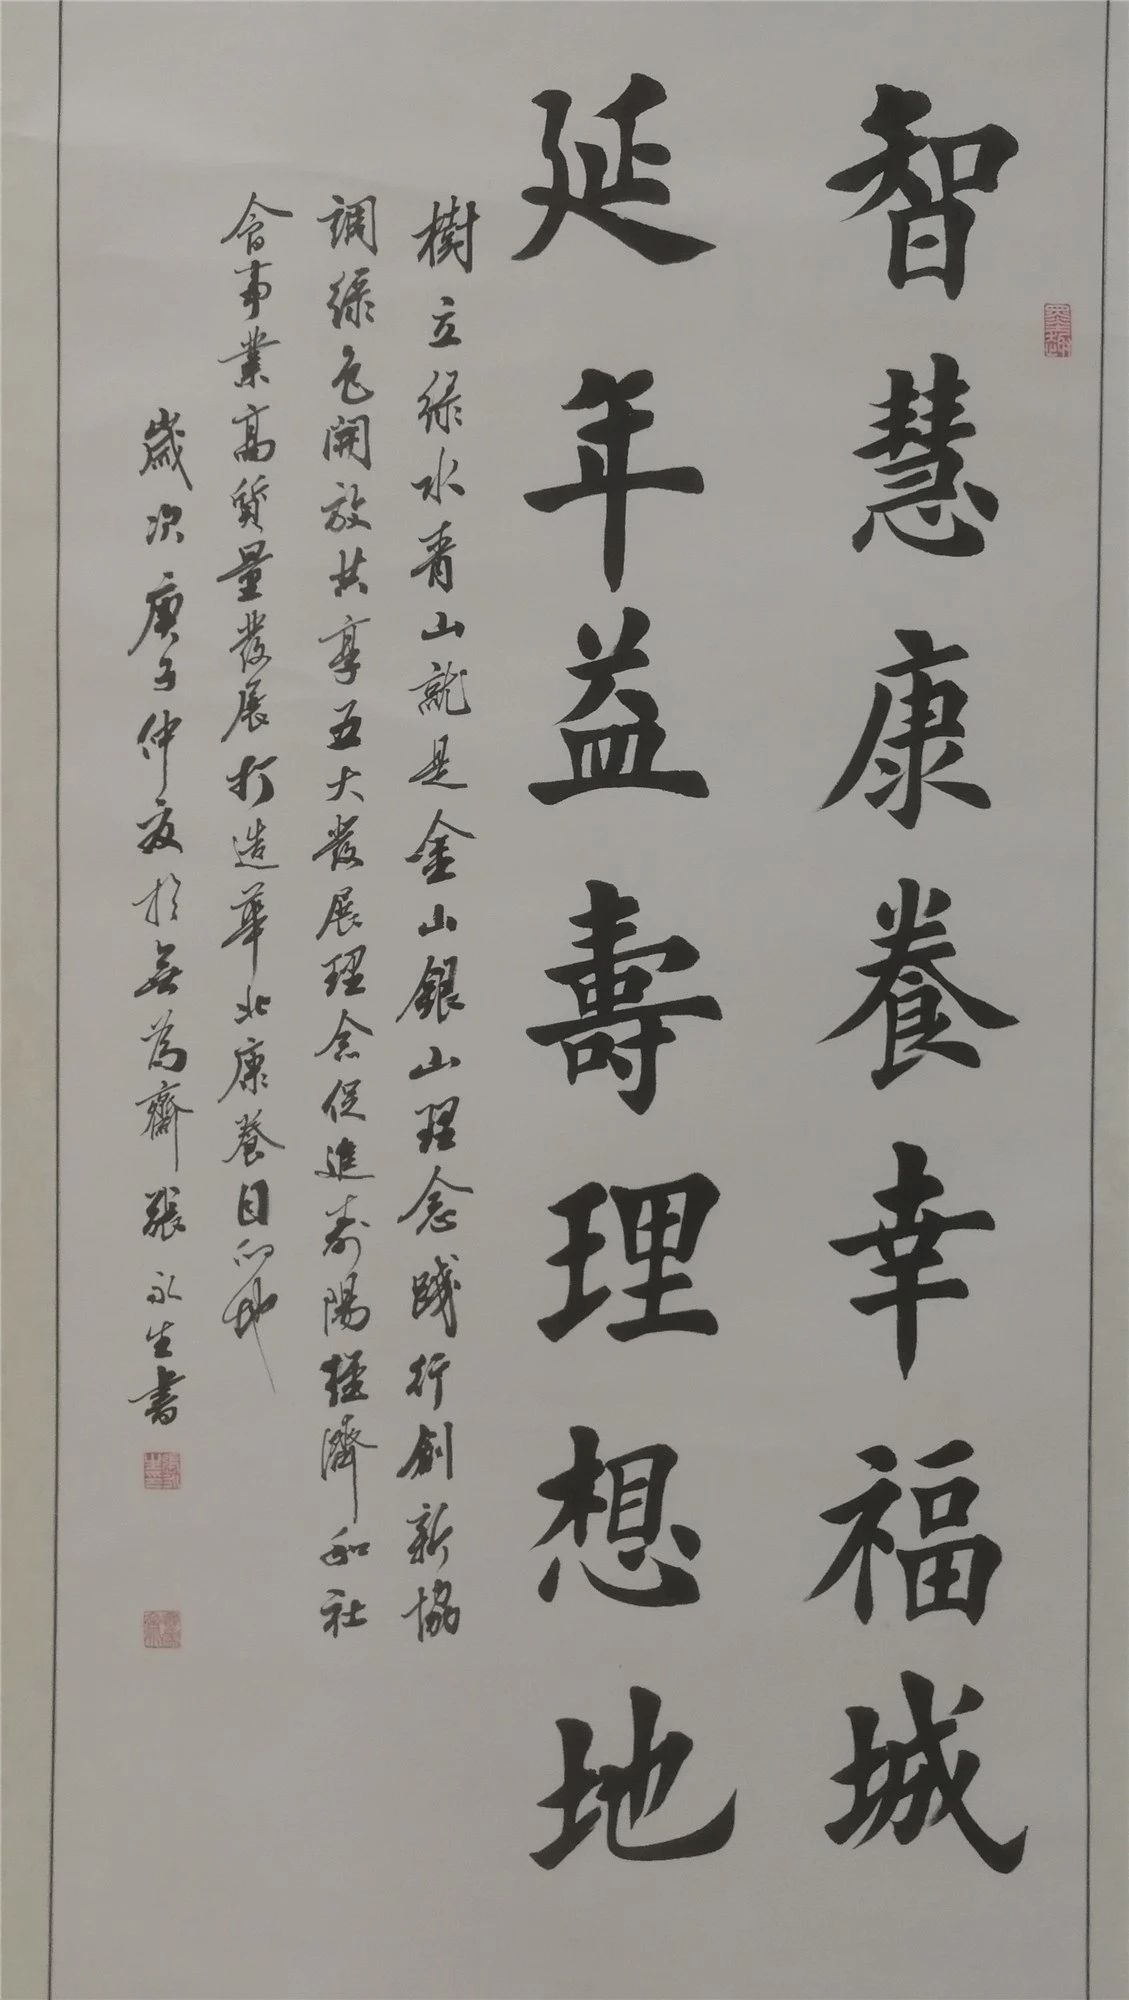 智慧康養幸福城
延年益壽理想地
樹立綠水青山就是金山銀山理念踐行創新協
調綠色開放共享五大發展理念促進壽陽經濟和社
會事業高質量發展打造華北康養目的地
歲次庚子仲夏於無為齋張永生書